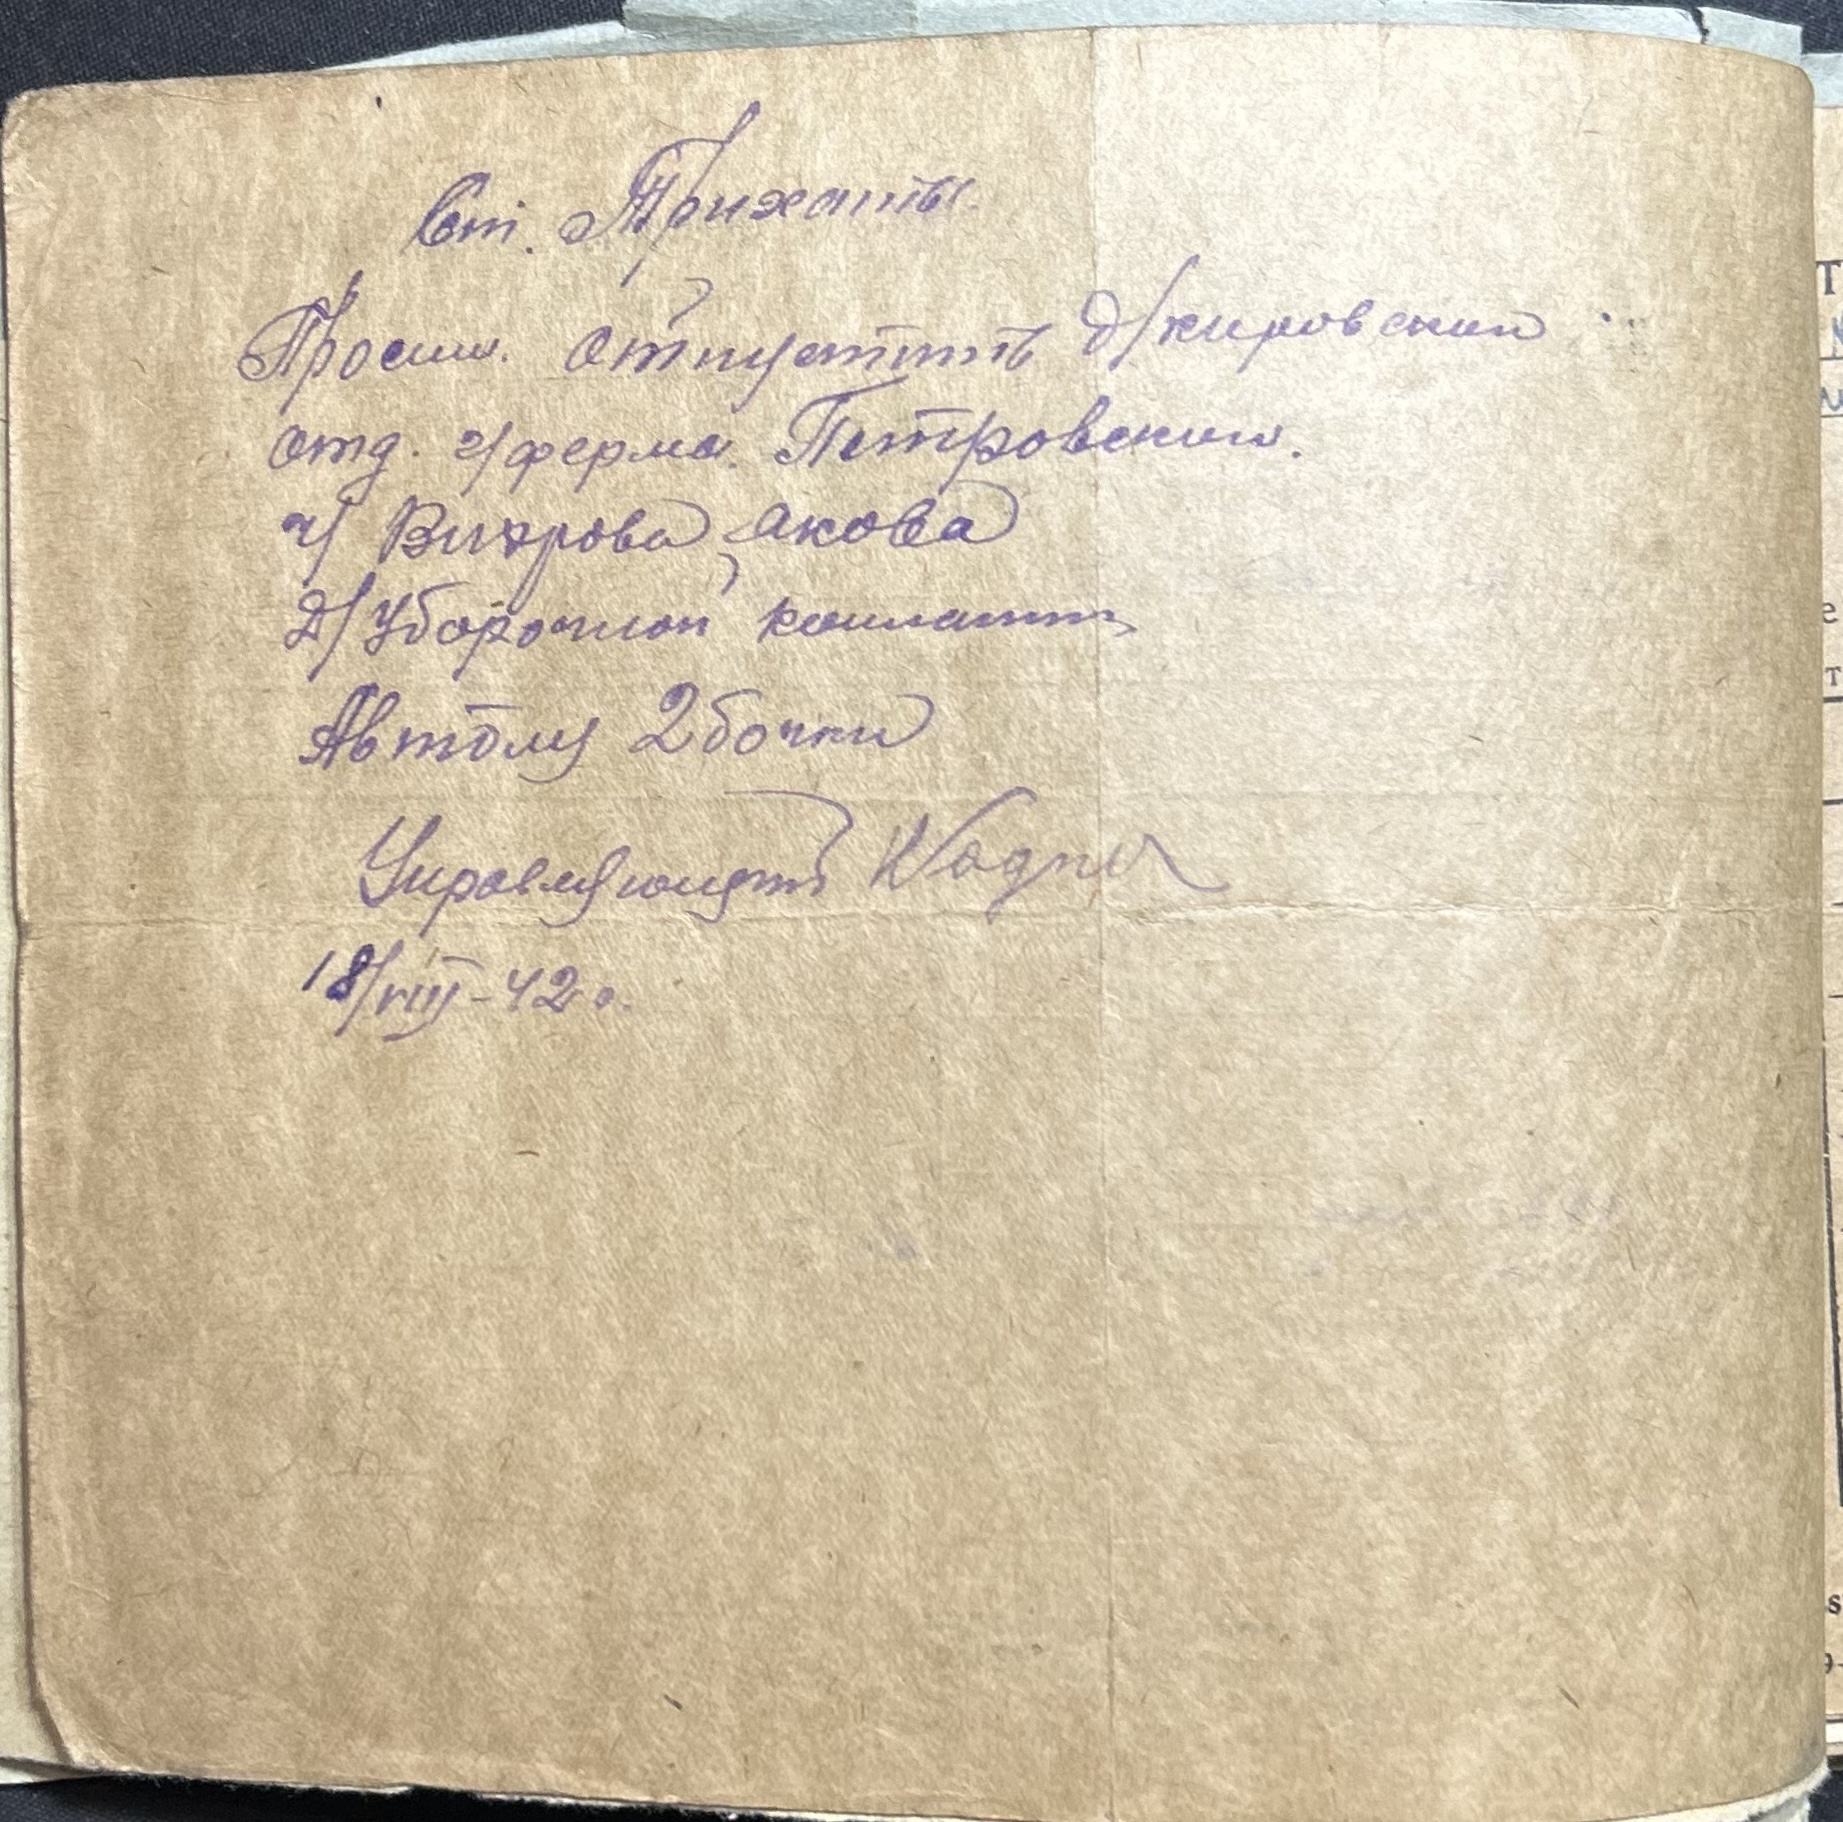 Ст. Трихаты.
Просим. отпустить д/кировский
отд. г/ферма. Петровский.
ч/ Вихрова Якова
д/ Уборочной компании
Автолу 2 бочки
Управляющий Wagner
18/VIII-42 г.